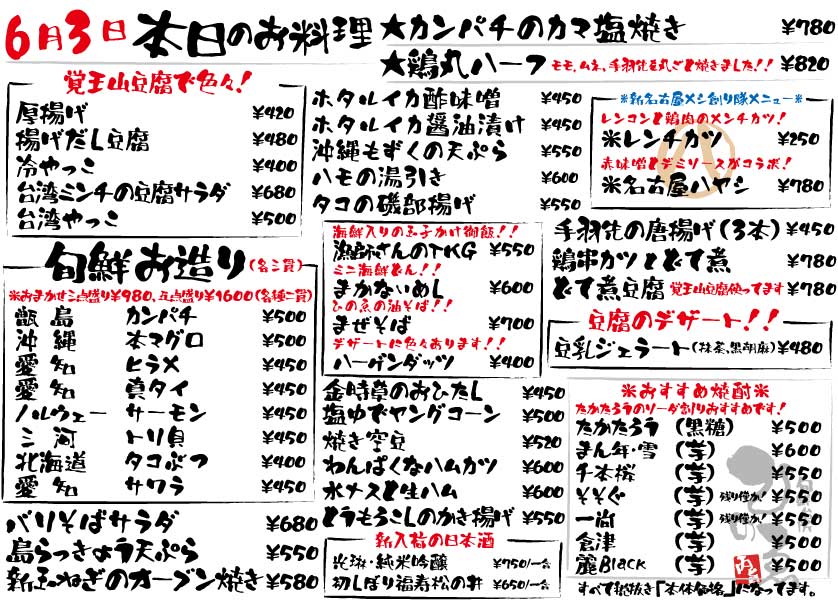 6月3日 本日のお料理
★カンパチのカマ塩焼き ¥780
★鶏丸ハーフ モモ、ムネ、手羽先を丸ごと焼きました!! ¥820
覚王山豆腐で色々!
厚揚げ ¥420
揚げだし豆腐 ¥480
冷やっこ ¥400
台湾ミンチの豆腐サラダ ¥680
台湾やっこ ¥500
旬鮮お造り(名二貫)
※おまかせ三点盛り¥980、五点盛り¥1600(各種二貫)
甑島 カンパチ ¥500
沖縄 本マグロ ¥500
愛知 ヒラメ ¥450
愛知 真タイ ¥450
ノルウェー サーモン ¥450
三河 トリ貝 ¥450
北海道 タコぶつ ¥400
愛知 サワラ ¥450
バリそばサラダ ¥680
島らっきょう天ぷら ¥550
新玉ねぎのオーブン焼き ¥580
ホタルイカ酢味噌 ¥450
ホタルイカ醤油漬け ¥450
沖縄もずくの天ぷら ¥550
ハモの湯引き ¥600
タコの磯部揚げ ¥550
海鮮入りの玉子かけ御飯!!
漁師さんのTKG ¥550
ミニ海鮮どん!!
まかないめし ¥600
ひの魚の油そば!!
まぜそば ¥700
デザートに色々あります!!
ハーゲンダッツ ¥400
金時草のおひたし ¥450
塩ゆでヤングコーン ¥500
焼き空豆 ¥520
わんぱくなハムカツ ¥600
水ナスと生ハム ¥600
とうもろこしのかき揚げ ¥550
新入荷の日本酒
光琳・純米吟醸 ¥750/一合
初しぼり福寿松の井 ¥650/一合
※新名古屋メシ創り隊メニュー※
レンコンと鶏肉のメンチカツ!
※レンチカツ ¥250
赤味噌とデミソースがコラボ!
※名古屋ハヤシ ¥780
手羽先の唐揚げ(3本) ¥450
鶏串カツとどて煮 ¥780
どて煮豆腐 覚王山豆腐使ってます ¥780
豆腐のデザート!!
豆乳ジェラート(抹茶、黒胡麻) ¥480
※おすすめ焼酎※
たかたろうのソーダ割りおすすめです!
たかたろう (黒糖) ¥500
まん年・雪 (芋) ¥600
千本桜 (芋) ¥550
そそぐ (芋) 残り僅か! ¥550
一尚 (芋) 残り僅か! ¥550
倉津 (芋) ¥500
麗Black (芋) ¥500
すべて税抜き「本体価格」になってます。